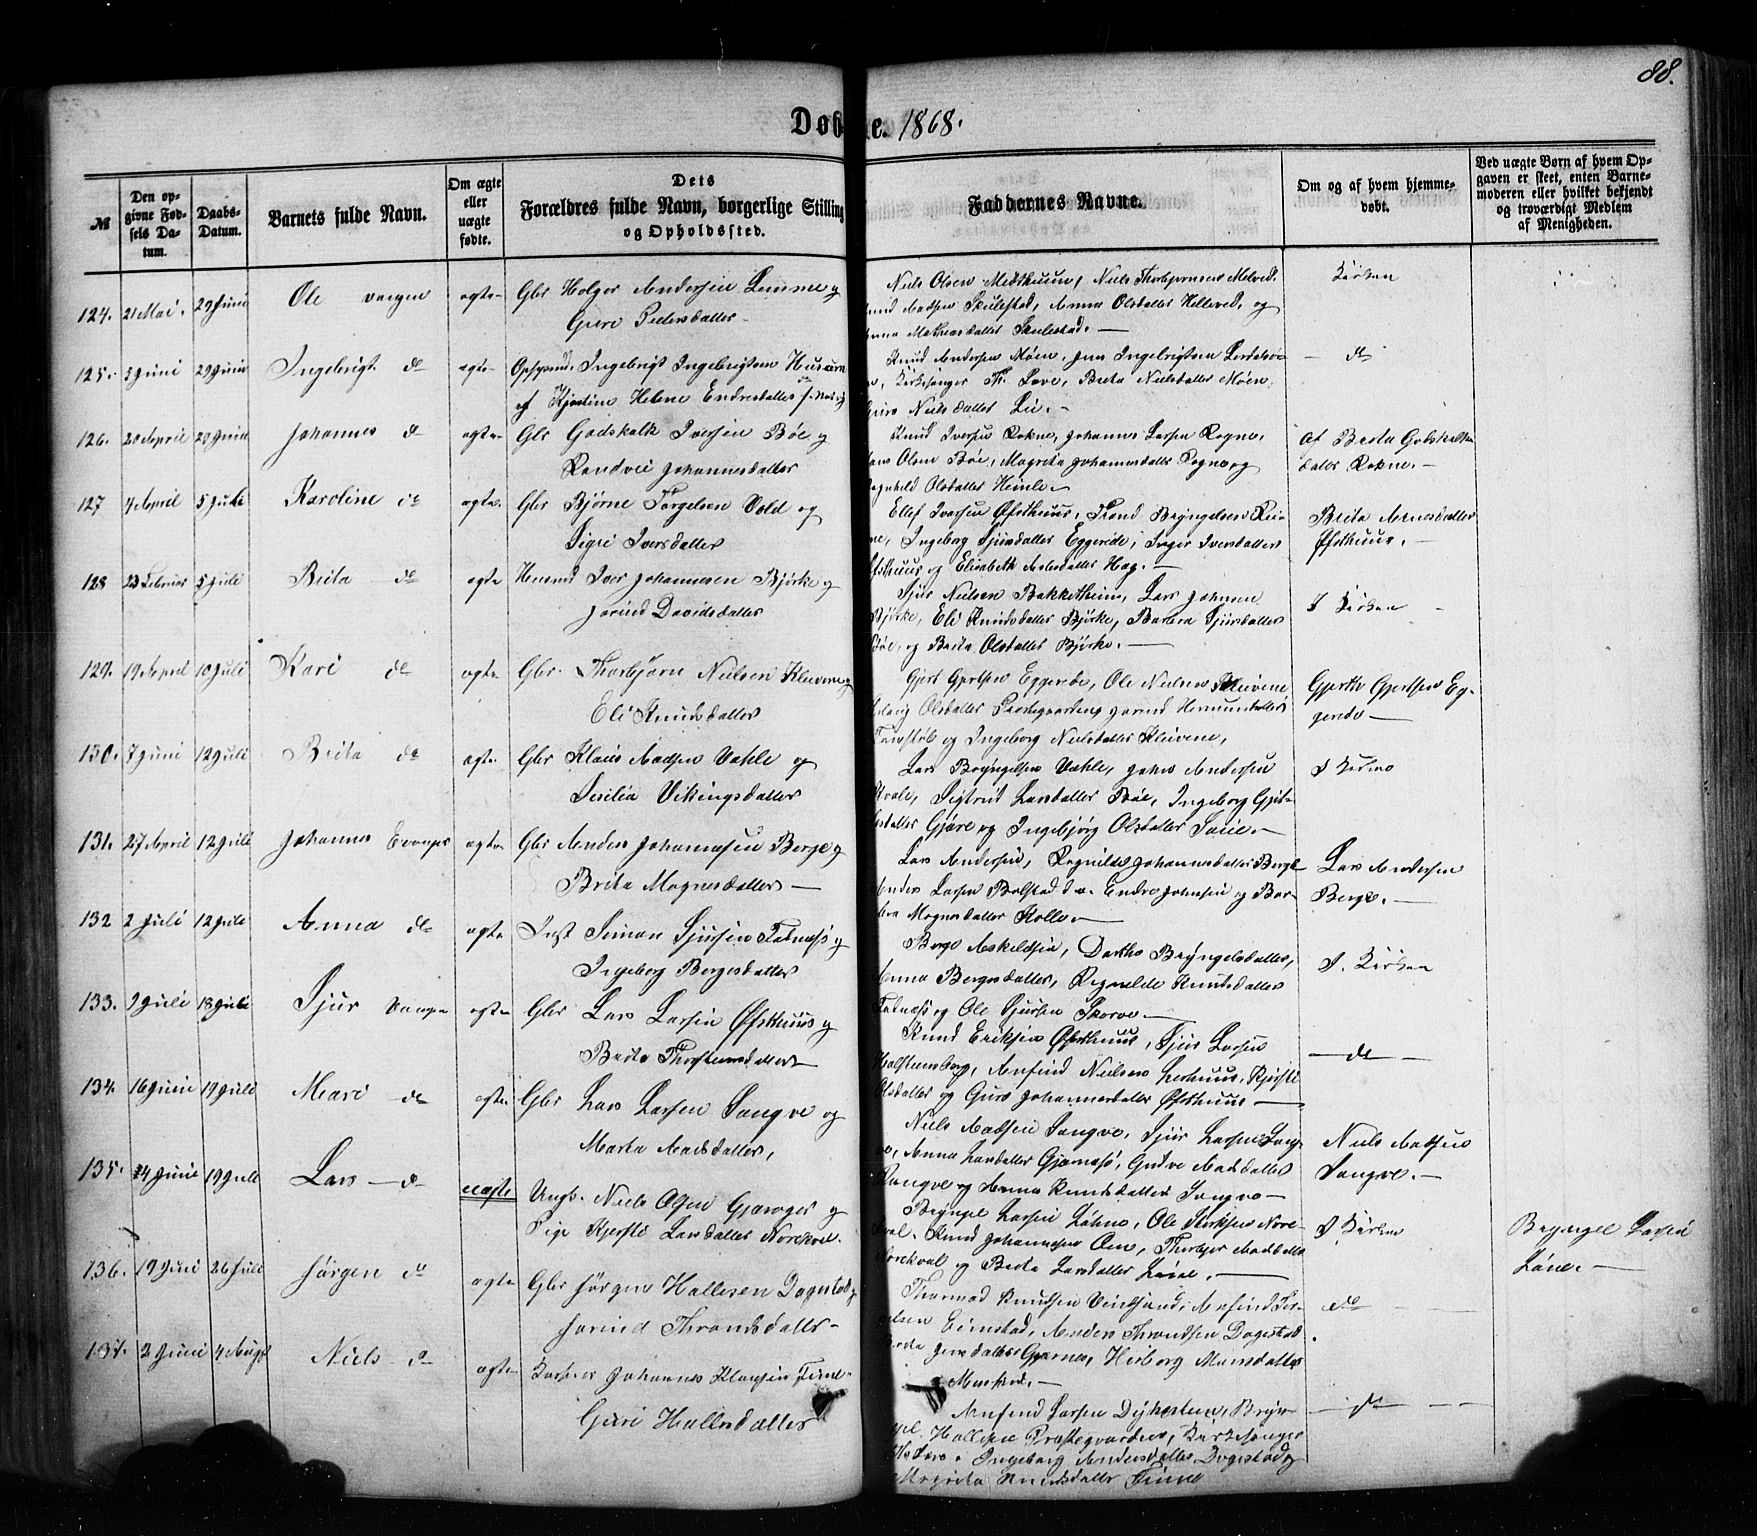 88.
Døbte. 1868.
№
Den opgivne Fødsels Datum.
Daabs-Datum.
Barnets fulde Navn.
Om ægte eller uægte fødte.
Dets Forældres fulde Navn, borgerlige Stilling og Opholdssted.
Faddernes Navne.
Om og af hvem hjemmedøbt.
Ved uægte Børn af hvem Opgaven er skeet, enten Barnemoderen eller hvilket bekjendt og troværdigt Medlem af Menigheden.
124. 21 Mai. 29 Juni Ole vangen ægte Gbr Holger Andersen Lemme og
Guri Pedersdatter
Niels Olsen Midthuun, Niels Thorbjørnsen Melved.
Madsen Skulestad, Anna Olsdatter Helleved, og
Mathiasdatter Skulestad. —
Kirken
125. 5 Juni 29 Juni Ingebrigt do ægte Ingebrigt Ingebrigtsen
Kjerstine Helene Endresdatter
Knud Andersen Möen, Jens Ingebrigtsen
Kirkesanger Th. Love, Brita Nielsdatter Möen,
Guro Nielsdatter Lie. —
do
126. 20 April 29 Juni Johannes do ægte Gbr Godskalk Iversen Bøe og
Randvei Johannesdatter
Knud Iversen Rokne, Johannes Larsen Rogne,
Olsen Bøe, Magrita Johannesdatter Rogne og
Olsdatter Himle. —
Af Brita Godskalksdatter Rokne. —
127 4 April 5 Juli Karoline do ægte Gbr Bjørne Torgelsen Vold og
Sigri Iversdatter
Ellef Iversen Øfsthuus, Trond Bryngelsen
Ingeborg Sjursdatter Eggereide, Inger Iversdatter
Øfsthuus og Elisabeth Haug. —
Brita Arnesdatter
Øfsthuus. —
128 23 Februar 5 Juli Brita do ægte Huusmd Iver Johannesen Bjørke og
Jorind Davidsdatter
Sjur Nielsen Bakketheim, Lars Johnsen
Bjørke, Eli Knudsdatter Bjørke, Barbra Sjursdatter
Bøe, og Brita Olsdatter Bjørke. —
I Kirken
129. 19 April 10 Juli Kari do ægte Gbr. Thorbjørn Nielsen Kleivene og
Eli Knudsdatter
Gjert Gjertsen Eggereide, Ole Nielsen Kleivene
Olsdatter Prestegaarden, Jorind Hermundsdatter
og Ingeborg Nielsdatter Kleivene,
Gjerth Gjertsen Eggereide —
130. 7 Juni 12 Juli Brita do ægte Gbr Klaus Madsen Væhle og
Sesilia Vikingsdatter
Lars Bryngelsen Væhle, John Andersen
Sigtrud Larsdatter Bøe, Ingeborg
Gjøre og Ingebjørg Olsdatter
I Kirken
131. 27 April 12 Juli Johannes Evanger ægte Gbr Anders Johannesen Berge og
Brita Magnesdatter —
Lars Andersen, Ragnilda Johannesdatter Berge
Anders Larsen Bolstad Endre Johnsen og Barbra
Mognesdatter Kolle. —
Lars Andersen
Berge. —
132 2 Juli 12 Juli Anna do ægte Inst Simon Sjursen Fadnæs og
Ingeborg Bergesdatter
Berge Askeldsen, Dorthe Bryngelsdatter,
Anna Bergesdatter, Ragnilde Knudsdatter
Fadnæs og Ole Sjursen Skorve. —
I. Kirken
133. 9 Juli 18 Juli Sjur Vangen ægte Gbr Lars Larsen Øfsthuus og
Brita Thorsteinsdatter
Knud Eriksen Øfsthuus, Sjur Larsen
Arnfind Nielsen Lerhuus, Kjersti
Olsdatter og Guro Johannesdatter Øfsthuus —
— do —
134. 16 Juni 19 Juli Mari do ægte Gbr Lars Larsen Sangve og
Marta Madsdatter,
Niels Madsen Sangve, Sjur Larsen
Anna Larsdatter Gjernæs, Gudve Madsdatter
Sangve og Anna Knudsdatter Sangve —
Niels Madsen
Sangve. —
135. 14 Juni 19 Juli Lars — do uægte Ungk. Niels Olsen Gjerager og
Pige Kjersti Larsdatter Norekval.
Bryngel Larsen Løhne, Ole Norekval,
Knud Johannesen Øen, Thorbjør Madsdatter
Norekval og Brita Larsdatter Løne. —
I Kirken
Bryngel Larsen
Løne. —
136. 19 Juni 26 Juli Jørgen do ægte Gbr Jørgen Hallesen Dagestad og
Jorind Throndsdatter
Thormod Knudsen Vindsand, Arnfind
Eimstad, Anders Throndsen Dagestad
Jensdatter Gjernes, Herborg Monsdatter
do —
137. 2 Juni 4 Augst Niels do ægte Johannes Klausen Finne
Guri Hallesdatter
Arnfind Larsen Dykesteen, Bryngel
Hallesen Prestegaarden, Kirkesanger
Ingeborg Andersdatter Dagestad og
Magrita Knudsdatter Finne
— do —